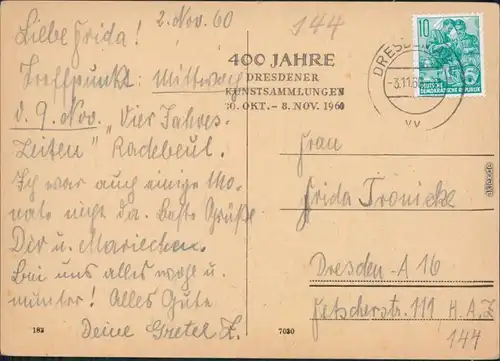 2. Nov. 60
Liebe Frida!
Treffpunkt: Mittwoch
d. 9. Nov. "Vier Jahres-
Zeiten" Radebeul.
Ich war auch einige Mo-
nate nicht da. Beste Grüße
Dir u. Mariechen.
Bei uns alles wohl u.
munter! Alles Gute
Deine Gretel Z.
183
7030
144
400 JAHRE
DRESDENER
KUNSTSAMMLUNGEN
30. OKT. - 8. NOV. 1960
DRESDEN
-3.11.60
vv
10
DEUTSCHE
DEMOKRATISCHE REPUBLIK
Frau
Frida Tronicke
Dresden-A 16
Fetscherstr. 111 H.A.Z.
144
akpool.de